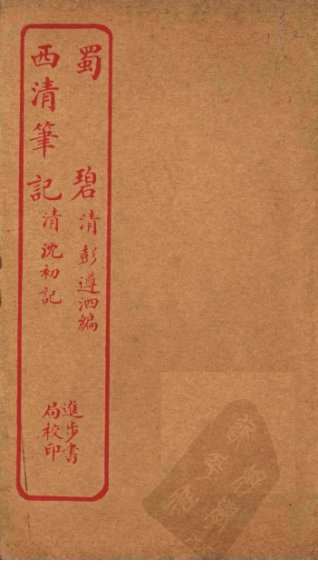 蜀碧 清 彭遵泗編
西清筆記 清 沈初記
進步書
局校印